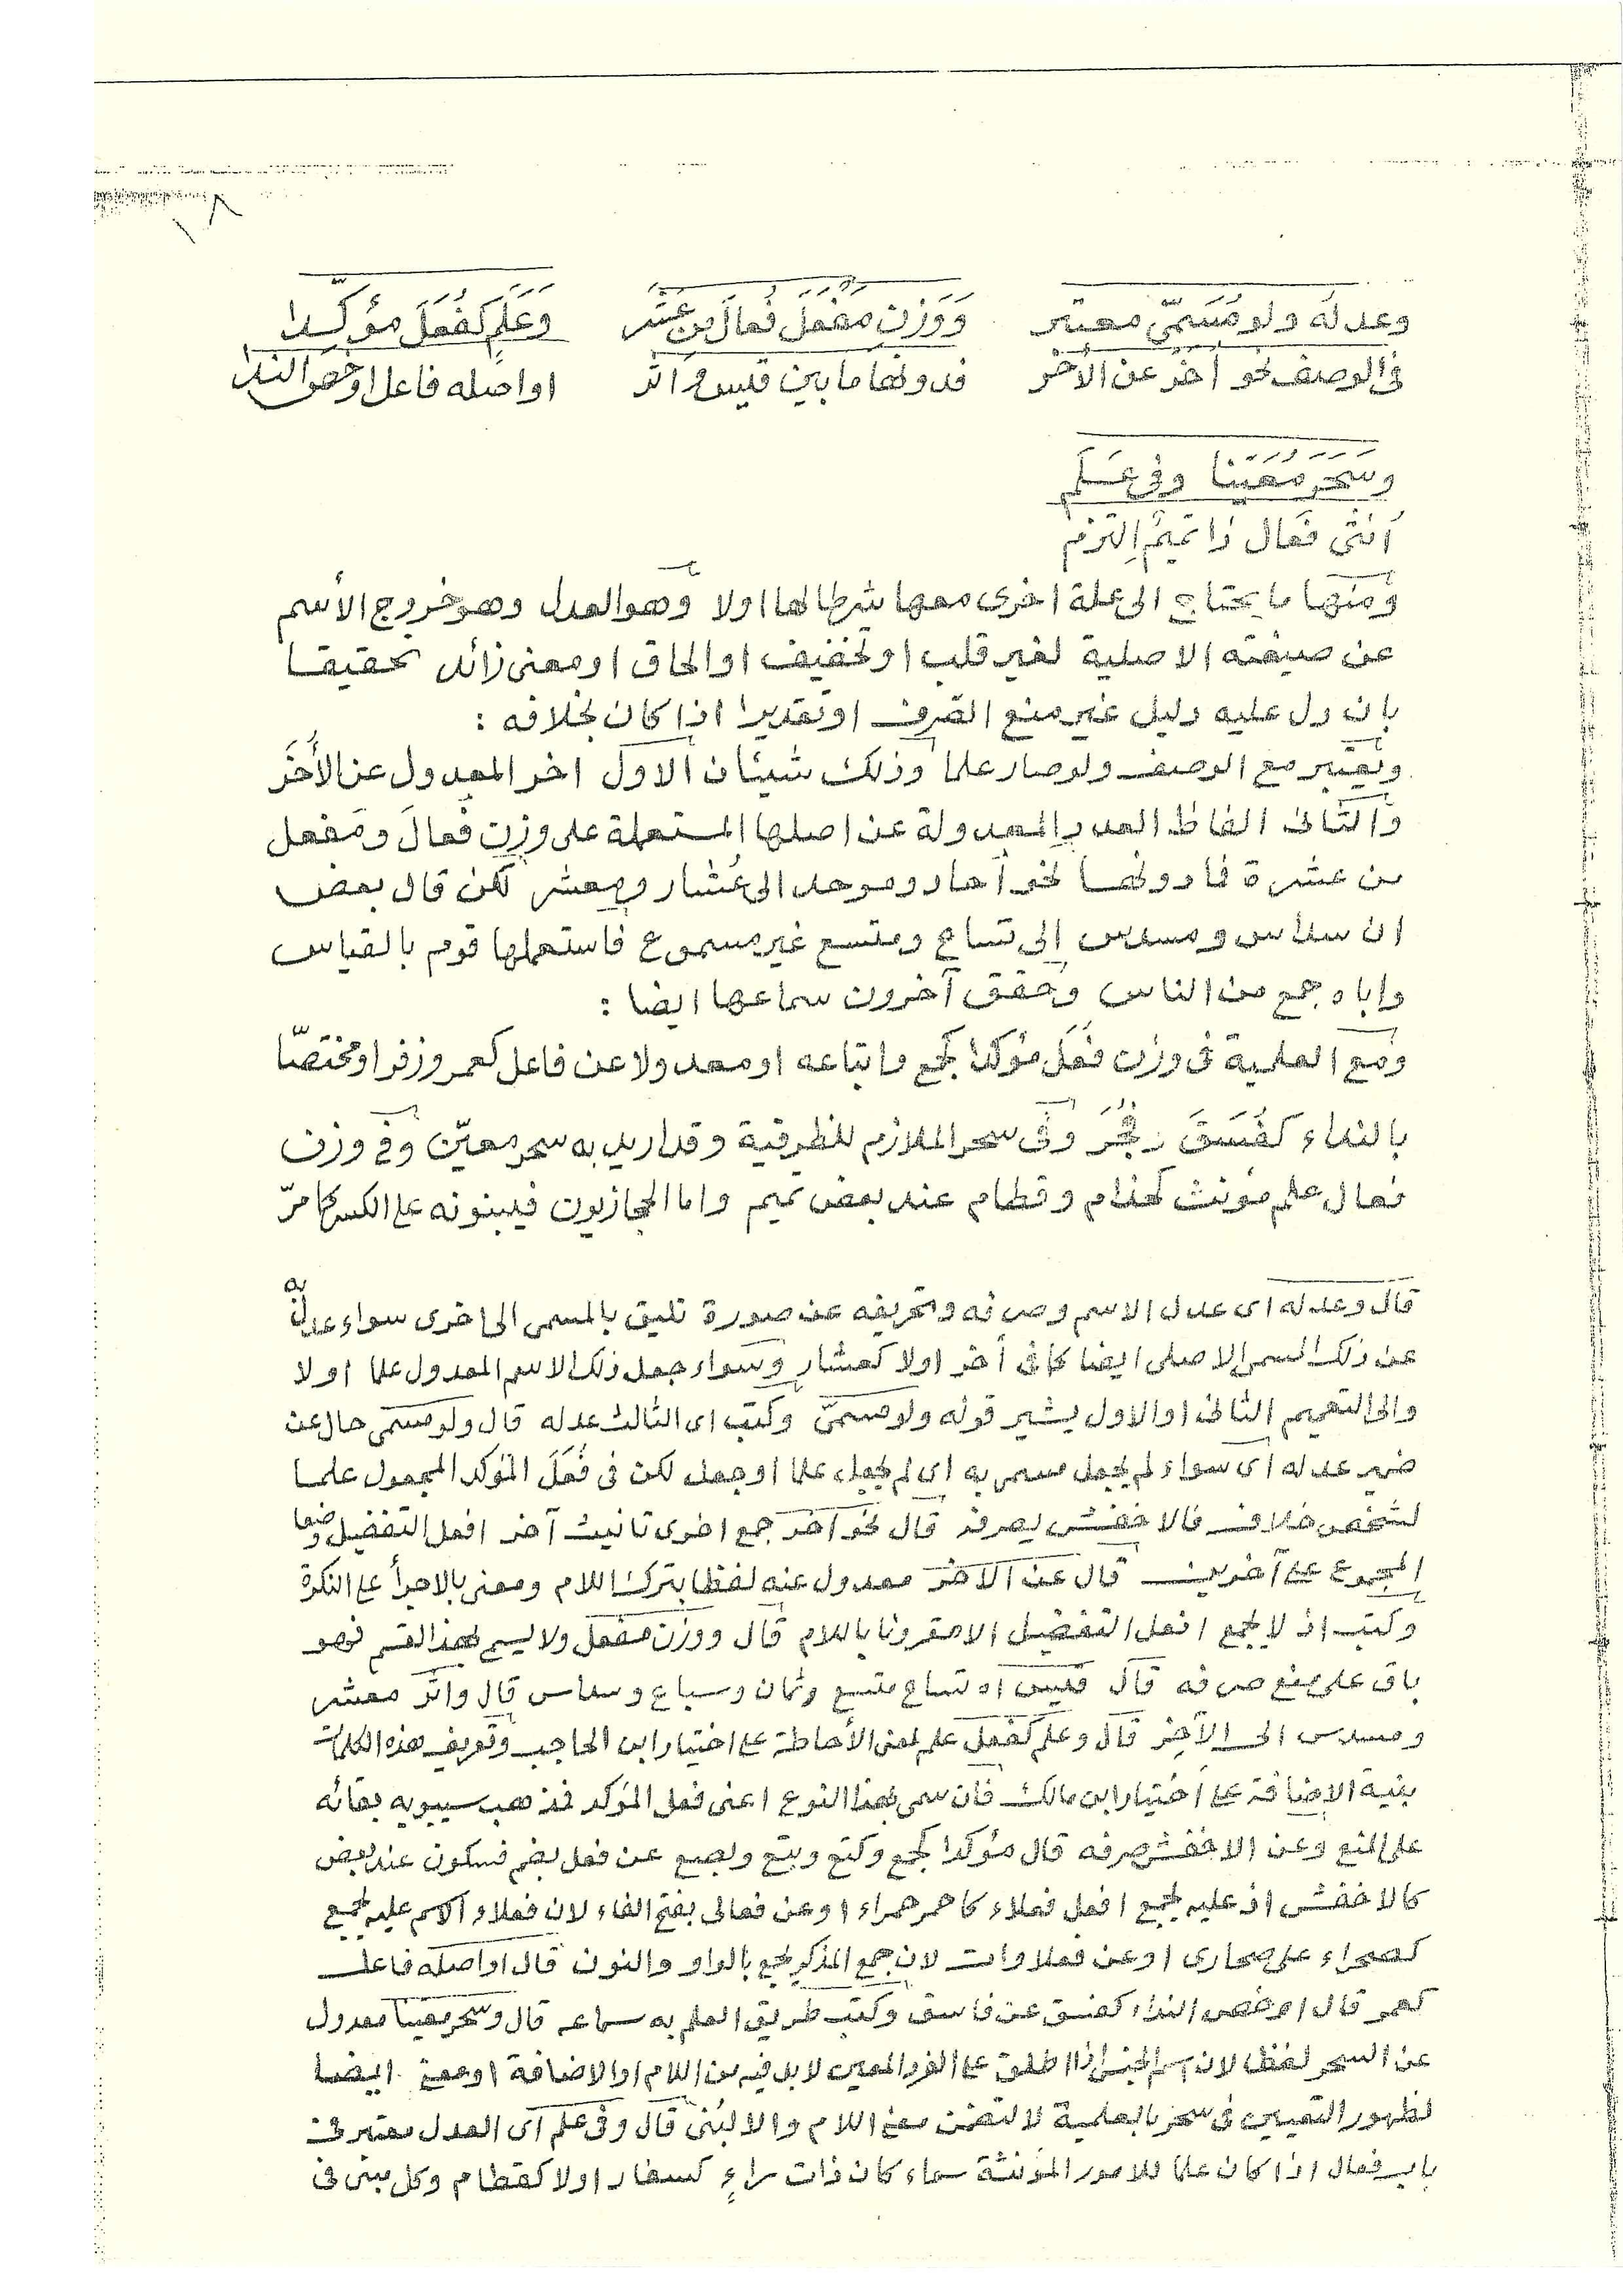 ١٨
وعدله ولو مُسَمّى معتبر وَوَزنِ مَفْعَلَ فُعالَ مِن عَشَر وَعَلَمٍ كَفُعَلَ مؤكِّدا
فى الوصف نحو أُخَرَ عن الأُخَر فدونها ما بين قليس واثر او اصله فاعل او خص الندا
وسَحَرَ مُعَيّنا وفى عَلَمِ
اُنثى فَعالِ ذا تميمٌ اِلتزم
ومنها ما يحتاج الى علة اخرى معها شرطا لها اولا وهو العدل وهو خروج الأسم
عن صيغته الاصلية لغير قلب او تخفيف او الحاق او معنى زائد تحقيقا
بان دل عليه دليل غير منع الصرف او تقديرا اذا كان بخلافه :
ويعتبر مع الوصف ولو صار علما وذلك شيئان الاول اخر المعدول عن الأُخَر
والثانى الفاظ العدد المعدولة عن اصلها المستعملة على وزن فُعالَ ومَفعل
من عشرة فما دونها نحو أحاد وموحد الى عُشار ومعشر لكن قال بعض
ان سداس ومسدس الى تساع ومتسع غير مسموع فاستعملها قوم بالقياس
واباه جمع من الناس وحقق آخرون سماعها ايضا :
ومع العلمية فى وزن فُعَل مؤكدا كجمع واتباعه او معدولا عن فاعل كعمر وزفر او مختصّا
بالنداء كفُسَقَ وفُجَرَ وفى سحر الملازم للظرفية وقد اريد به سحر معيّن وفى وزن
فعال علم مؤنث كحذام وقطام عند بعض تميم واما الحجازيون فيبنونه على الكسر كما مرّ
قال وعدله اى عدل الاسم وصرفه وتحريفه عن صورة تليق بالمسمى الى اخرى سواء عدل به
عن ذلك المسمى الاصلى ايضا كما فى أخر اولا كعشار وسواء جعل ذلك الاسم المعدول علما اولا
والى التعميم الثانى او الاول يشير قوله ولو مسمىّ وكتب اى الثالث عدله قال ولو مسمى حال عن
ضمير عدله اى سواء لم يجعل مسمى به اى لم يجعل علما او جعل لكن فى فُعَلَ المؤكد المجعول علما
لشخص خلاف فالاخفش يصرفه قال نحو اخر جمع اخرى تانيث آخر افعل التفضيل وضعا
المجموع على آخرين قال عن الاخر معدول عنه لفظا بترك اللام ومعنى بالاجرأ على النكرة
وكتب اذ لا يجمع افعل التفضيل الا مقرونا باللام قال ووزن مفعل ولا يسمى بهذا القسم فهو
باق على منع صرفه قال قليس اه تساع متسع وثمان وسباع وسداس قال واثر معشر
ومسدس الى الآخر قال وعلم كفعل علم لمعنى الأحاطة على اختيار ابن الحاجب وتعريف هذه الكلمات
بنية الاضافة على اختيار ابن مالك فان سمى بهذا النوع اعنى فعل المؤكد فذهب سيبويه بقائه
على المنع وعن الاخفش صرفه قال مؤكدا كجمع وكتع وبتع وبصع عن فعل بضم فسكون عند بعض
كالاخفش اذ عليه يجمع افعل فعلاء كاحمر حمراء او عن فعالى بفتح الفاء لان فعلاء الاسم عليه يجمع
كصحراء على صحارى او عن فعلاوات لان جمع المذكر يجمع بالواو والنون قال او اصله فاعل
كعمر قال او خص النداء كفسق عن فاسق وكتب طريق العلم به سماعه قال وسحر معينا معدول
عن السحر لفظا لان اسم الجنس اذا اطلق على الفرد المعين لا بد فيه من اللام او الاضافة او معنى ايضا
لظهور التعيين فى سحر بالعلمية لا لتضمن معنى اللام والا لبُنى قال وفى علم اى العدل معتبر فى
باب فعال اذا كان علما للامور المؤنثة سواء كان ذات راءٍ كسفار اولا كقطام وكل مبنى فى